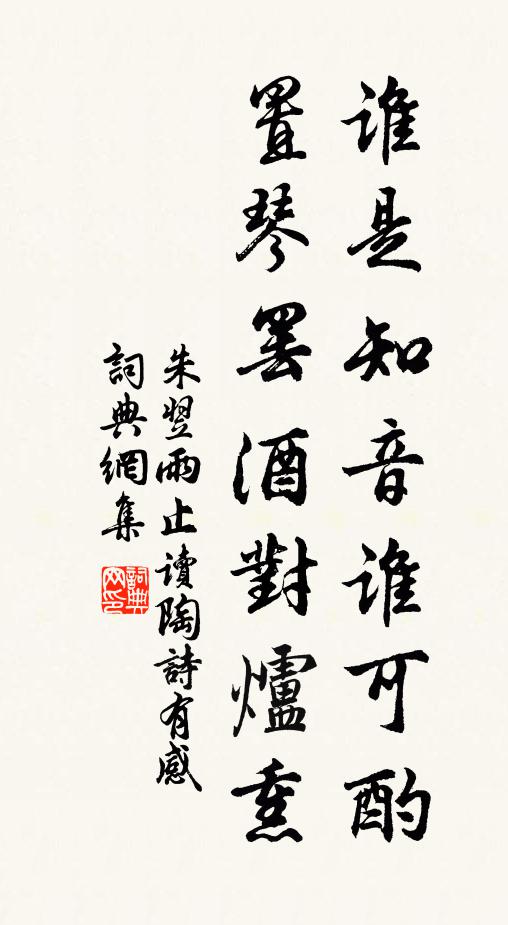 誰是知音誰可酌
置琴罷酒對爐熏
朱翌雨止讀陶詩有感
詞典網集
詞典
网印